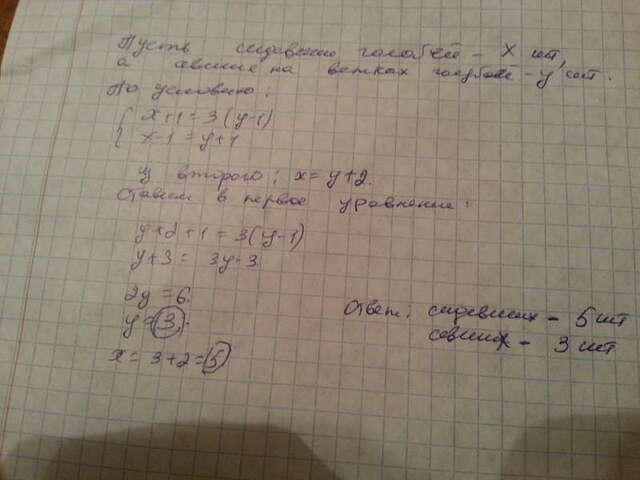 Пусть сидевших голубей - x шт,
а севшие на ветках голубей - y шт.
По условию:
x+1=3(y-1)
x-1=y+1
Из второго: x=y+2.
Ставим в первое уравнение:
y+2+1=3(y-1)
y+3= 3y-3
2y=6.
y=3.
x=3+2=5
Ответ: сидевших - 5 шт
севших - 3 шт